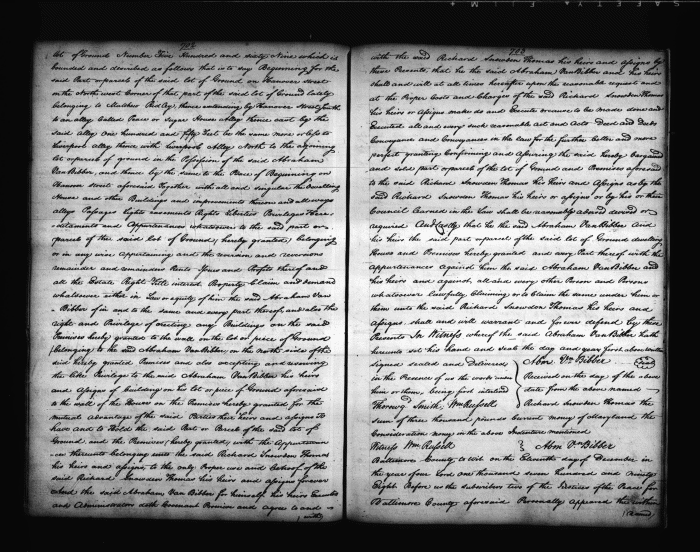 lot of Ground Number Five Hundred and sixty Nine which is
bounded and described as follows that is to say Beginning for the
said Part or parcel of the said lot of Ground on Hanover street
on the Northwest Corner of that part of the said lot of Ground lately
belonging to Ridley thence extending by Hanover Street South
to an alley Called Peace or Sugar House alley thence east by the
said alley one hundred and fifty Feet be the same more or less to
Liverpool alley thence with Liverpool alley North to the adjoining
lot or parcel of ground in the Possession of the said Abraham
VanBibber, and thence by the same to the Place of Beginning on
Hanover street aforesaid Together with all and singular the Dwelling
House and other Buildings and improvements thereon and all ways
alleys Passages lights easements Rights liberties Privileges
and Appurtenances whatsoever to the said part or
parcel of the said lot of Ground (hereby granted) belonging
or in any wise appertaining and the reversion and reversions
remainder and remainders Rents Issues and Profits thereof and
all the Estate Right Title interest Property Claim and demand
whatsoever either in Law or equity of him the said Abraham Van
Bibber of in and to the same and every part thereof and also the
right and Privilege of erecting any Buildings on the said
Premises hereby granted to the wall on the lot or piece of Ground
(belonging) to the said Abraham VanBibber on the north side of the
said hereby granted Premises and also excepting and reserving
the like Privilege to the said Abraham VanBibber his heirs
and Assigns of building on his lot or piece of Ground aforesaid
to the wall of the House on the Premises hereby granted for the
mutual advantage of the said Parties their Heirs and assigns To
have and to Hold the said Part or Parcel of the said lot of
Ground and the Premises (hereby granted) with the Appurtenan-
ces thereunto belonging unto the said Richard Snowden Thomas
his heirs and assigns to the only Proper use and behoof of the
said Richard Snowden Thomas his heirs and assigns forever
And the said Abraham Van Bibber for himself his heirs Executors
and Administrators doth Covenant Promise and agree to and
with
with the said Richard Snowden Thomas his heirs and assigns by
these Presents, that he the said Abraham VanBibber and his heirs
shall and will at all times hereafter upon the reasonable request and
at the Proper Costs and Charges of the said Richard Snowden Thomas
his heirs or assigns make do and Execute or cause to be made done and
Executed all and every such reasonable act and Acts Deed and Deeds
Conveyance and Conveyances in the law for the further better and more
perfect granting Confirming and assuring the said hereby bargained
and sold part or parcel of the lot of Ground and Premises aforesaid
to the said Richard Snowden Thomas his heirs and Assigns as by the
said Richard Snowden Thomas his heirs or assigns or by his or their
Council Learned in the Law shall be reasonably advised devised or
required And Lastly that he the said Abraham VanBibber and
his heirs the said part or parcel of the said lot of Ground dwelling
House and Premises hereby granted and every Part thereof with the
appurtenances against him the said Abraham VanBibber and
his heirs and against all and every other Person and Persons
whatsoever lawfully Claiming or to Claim the same under him or
them unto the said Richard Snowden Thomas his heirs and
Assigns shall and will warrant and forever defend by these
Presents In Witness whereof the said Abraham VanBibber hath
hereunto set his hand and seal the day and year first above written
signed sealed and Delivered
in the Presence of us the words
him or them, being first
Thorowg Smith, Wm Russell
Abm Van Bibber
Received on the day of the
date from the above named
Richard Snowden Thomas the
sum of three thousand pounds Current money of Maryland the
Consideration money in the above Indenture mentioned
Witness Wm Russell Abm Van Bibber
Baltimore County to wit on the Eleventh day of December in
the year of our Lord one thousand seven hundred and ninety
Eight Before us the subscribers two of the Justices of the Peace for
Baltimore County aforesaid Personally appeared the within